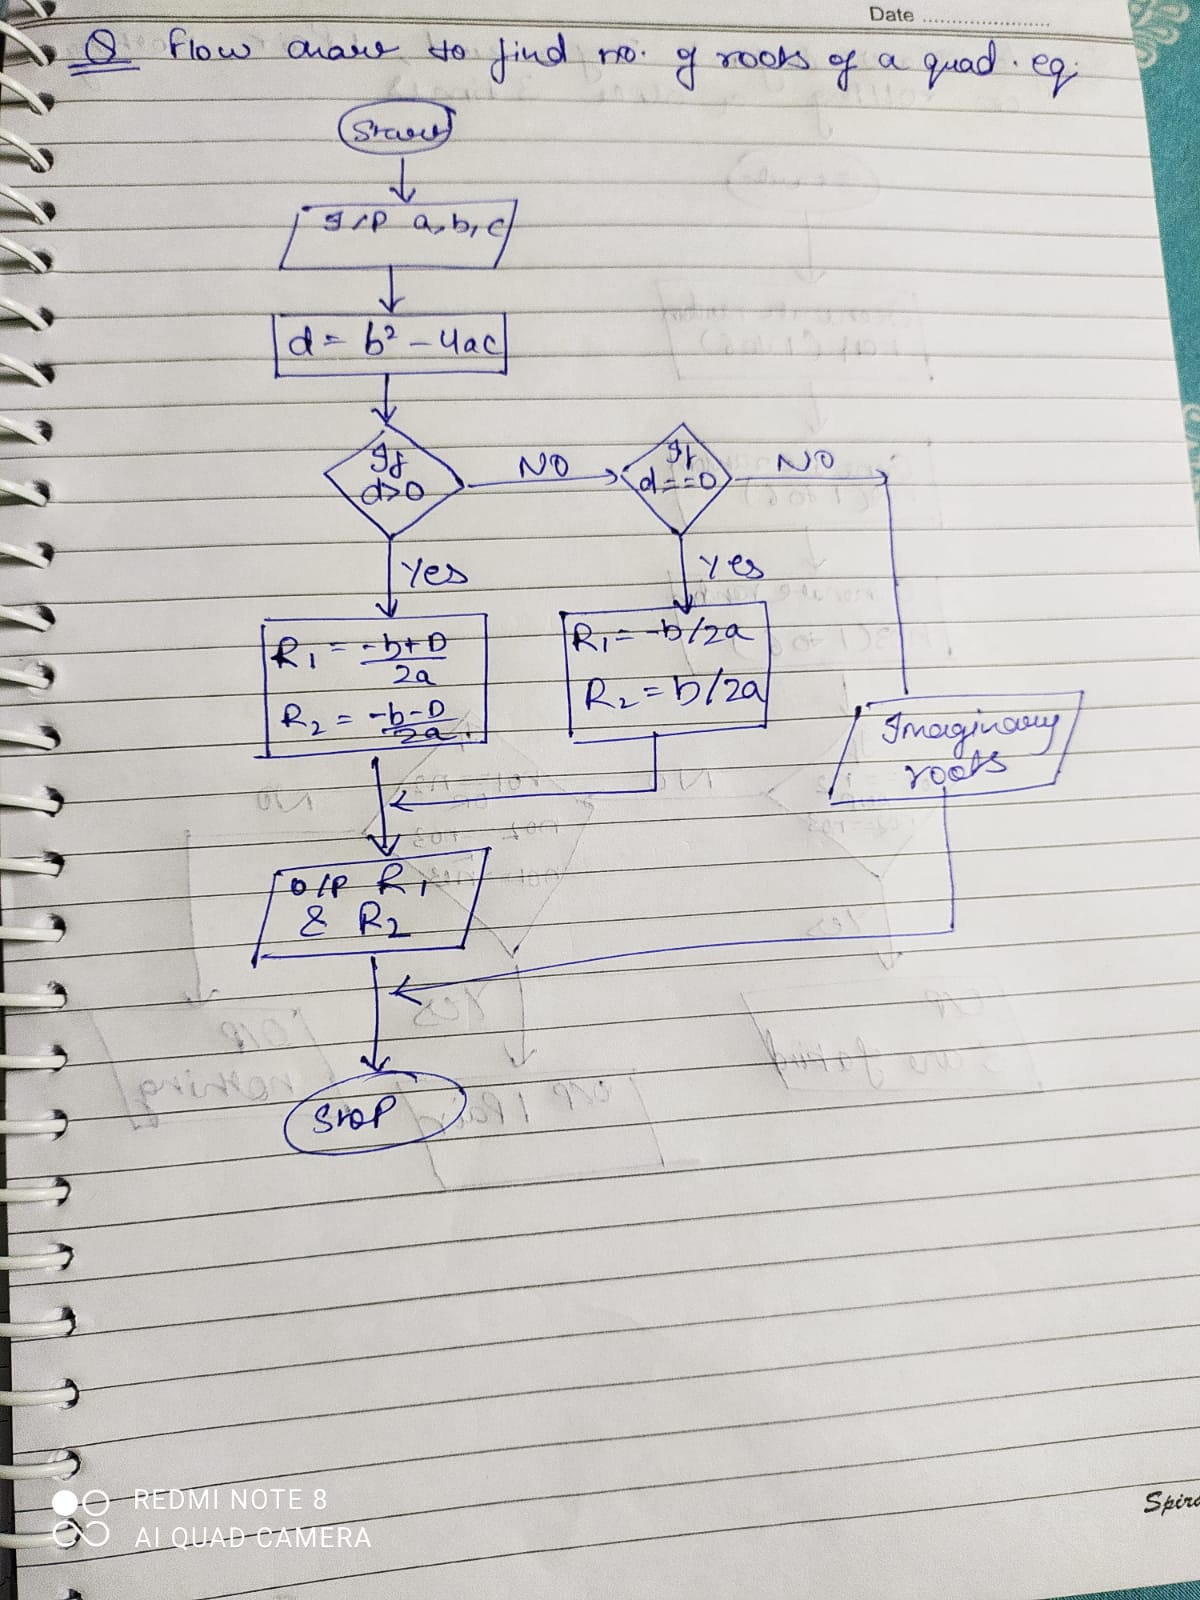 Date
Q Flow chart to find no. of roots of a quad. eq.
Start
I/P a, b, c
d = b² - 4ac
If
d>0
NO
If
d==0
NO
Yes
Yes
R₁ = -b+D
2a
R₂ = -b-D
2a
R₁ = -b/2a
R₂ = b/2a
Imaginary
roots
O/P R₁
& R₂
Stop
REDMI NOTE 8
AI QUAD CAMERA